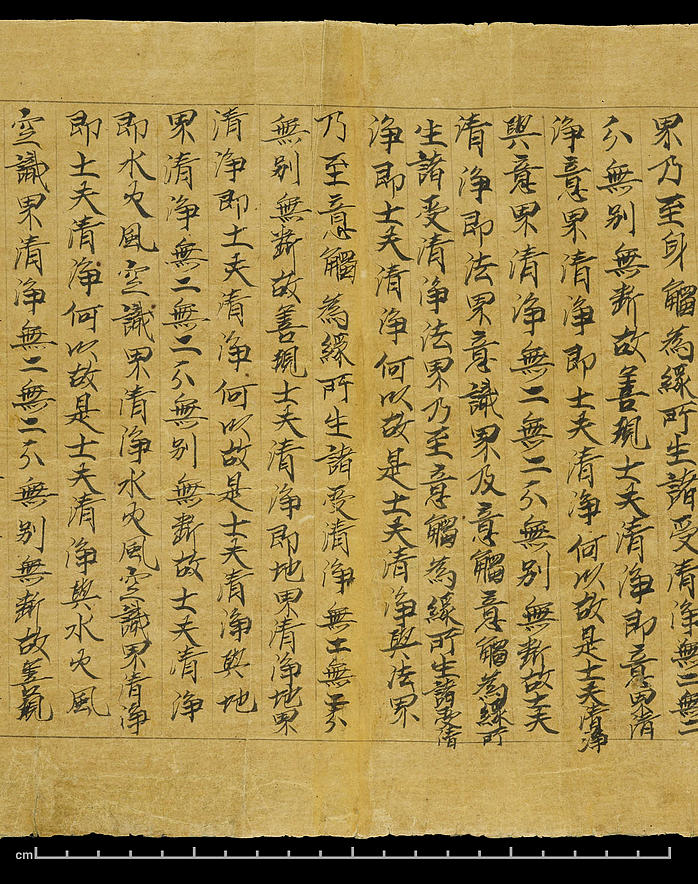 界乃至身觸為緣所生諸受清淨無二無二
分無別無斷故善現士夫清淨即意界清
淨意界清淨即士夫清淨何以故是士夫清淨
與意界清淨無二無二分無別無斷故士夫
清淨即法界意識界及意觸意觸為緣所
生諸受清淨法界乃至意觸為緣所生諸受清
淨即士夫清淨何以故是士夫清淨與法界
乃至意觸為緣所生諸受清淨無二無二分
無別無斷故善現士夫清淨即地界清淨地界
清淨即士夫清淨何以故是士夫清淨與地
界清淨無二無二分無別無斷故士夫清淨
即水火風空識界清淨水火風空識界清淨
即士夫清淨何以故是士夫清淨與水火風
空識界清淨無二無二分無別無斷故善現
cm